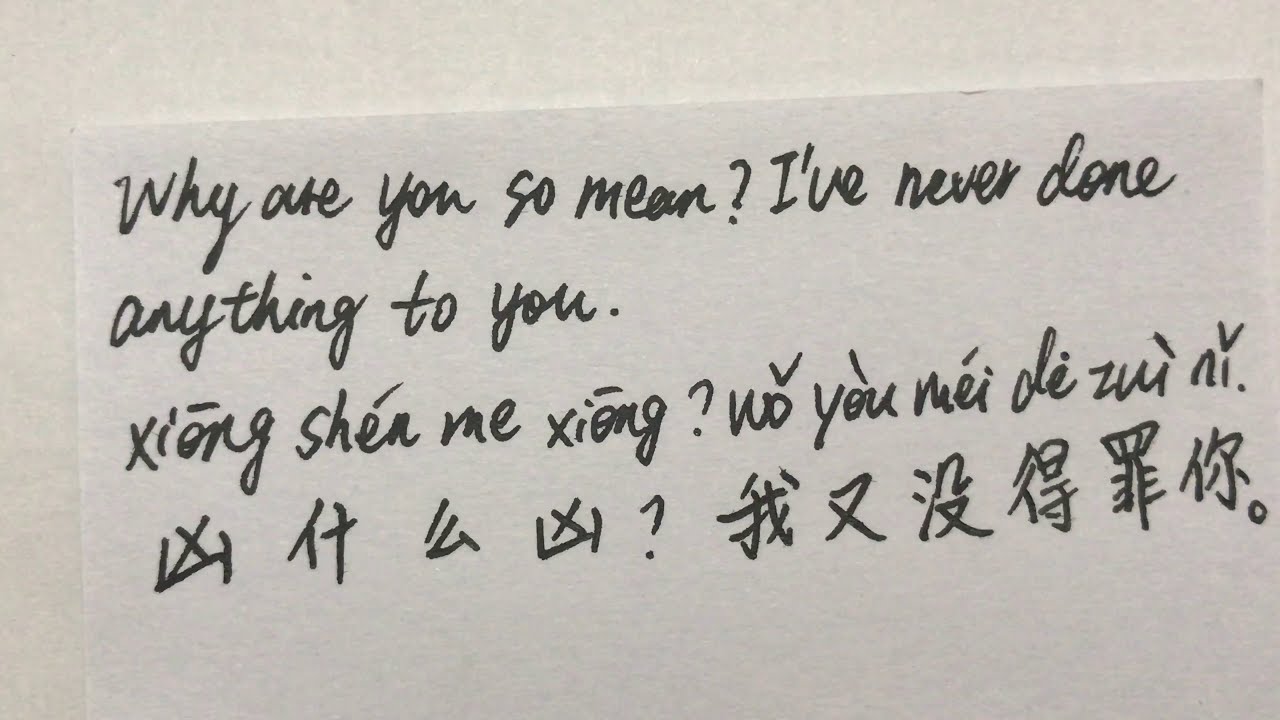 Why are you so mean? I've never done
anything to you.
xiōng shén me xiōng? wǒ yòu méi dé zuì nǐ.
凶什么凶?我又没得罪你。